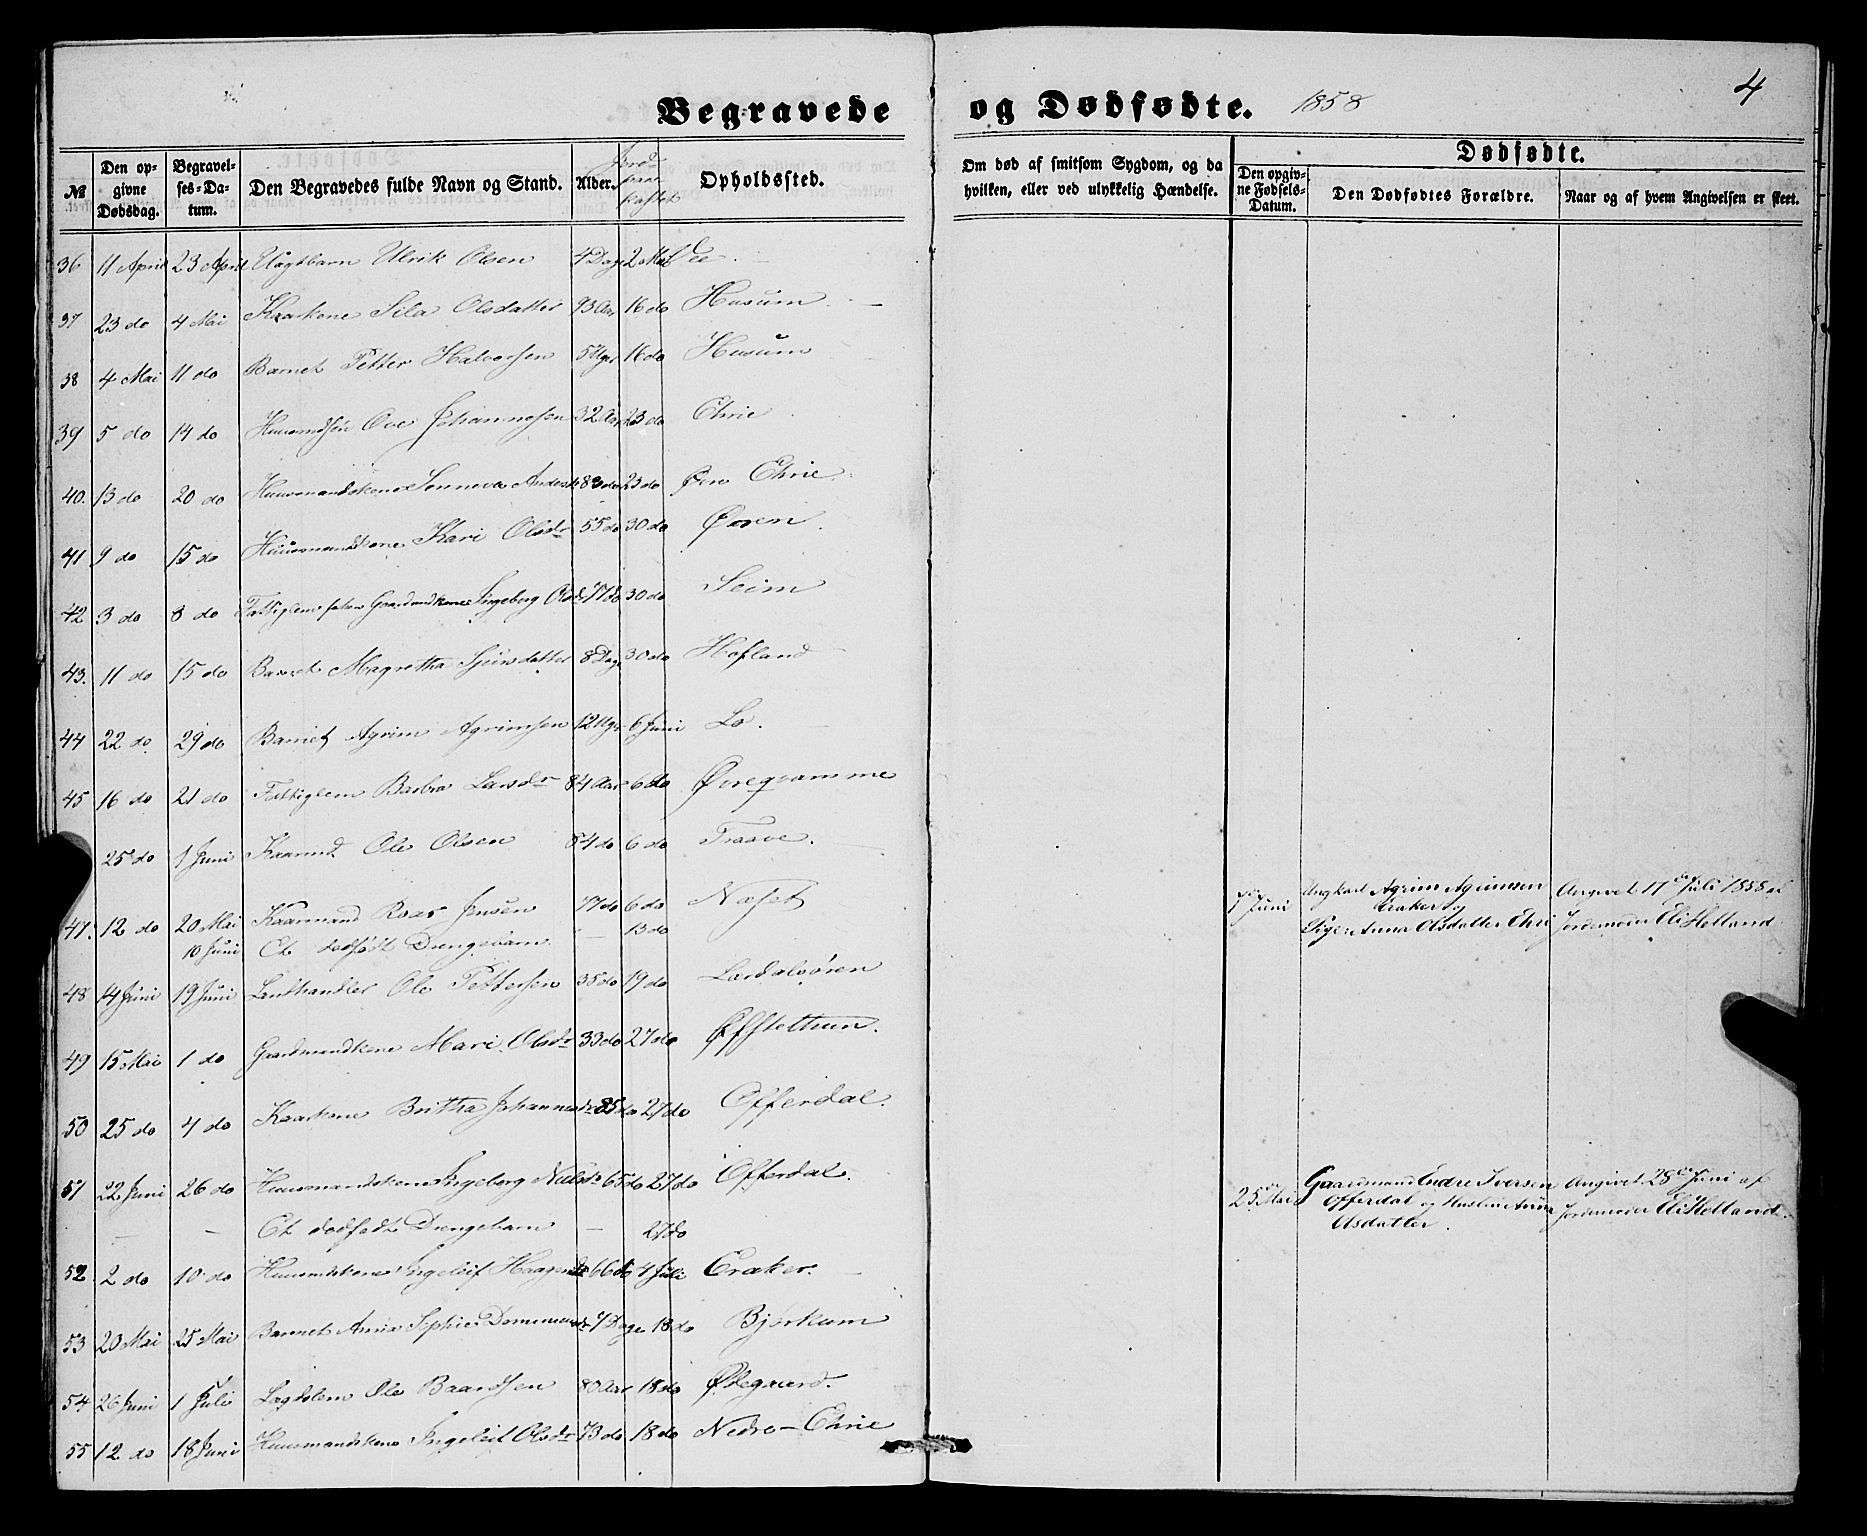 Begravede og Dødfødte. 1858 4
№ Den opgivne Dødsdag. Begravelses-Datum. Den Begravedes fulde Navn og Stand. Alder. Jordpaakastet Opholdssted.
Om død af smitsom Sygdom, og da hvilken, eller ved ulykkelig Hændelse.
Dødfødte.
Den opgivne Fødsels-Datum. Den Dødfødtes Forældre. Naar og af hvem Angivelsen er skeet.
36 11 April 23 April Uægtbarn Ulrik Olsen 4 Dage 2 Mai Lee.
37 23 do 4 Mai Kaarkone Sila Olsdatter 93 Aar 16 do Husum
38 4 Mai 11 do Barnet Petter Halvorsen 5 Uger 16 do Husum
39 5 do 14 do Huusmdsøn Ove Johannesen 32 Aar 23 do Ehrie
40. 13 do 20 do Huusmandskone Sønneva Andersdr 83 do 23 do Øvre Ehrie
41 9 do 15 do Huusmandskone Kari Olsdr 55 do 30 do Øren.
42 3 do 8 do Fattiglem Gaardmdkone Ingeborg Olsdr 77 do 30 do Seim
43. 11 do 15 do Barnet Magretha Sjursdatter 8 Dage 30 do Hofland
44 22 do 29 do Barnet Agrim Agrimsen 12 Uger 6 Juni Lo.
45 16 do 21 do Fattiglem Barbra Larsdr 84 Aar 6 do Øvregramme
25 do 1 Juni Kaarmd. Ole Olsen 84 do 6 do Traave.
47. 12 do 20 Mai Kaarmand Roar Jensen 77 do 6 do Næset
10 Juni Et dødfødt Drengebarn — 13 do
7 Juni Ungkarl Agrim Agrimsen Eraker og Pige Anna Olsdatter Ehri
Angivet 17de Juli 1858 af Jordemoder Eli Helland
48 14 Juni 19 Juni Landhandler Ole Pettersen 35 do 19 do Lærdalsøren
49 15 Mai 1 do Gaardmandkone Mari Olsdr 33 do 27 do Øffstethun.
50 25 do 4 do Kaarkone Britha Johannesdr 85 do 27 do Offerdal.
51 22 Juni 26 do Huusmandskone Ingeborg Nielsdr 65 do 27 do Offerdal.
— — Et dødfødt Drengebarn — 27 do
25de Mai Gaardmand Endre Iversen Offerdal og Hustru Anna Olsdatter.
Angivet 28de Juni af Jordemoder Eli Helland.
52 2 do 10 do Huusmdskone Ingeleif Haagensdr 66 do 4 Juli Eraker.
53 20 Mai 25 Mai Barnet Anna Sophie 7 Dage 18 do Bjørkum
54 26 Juni 1 Juli Lægdslem Ole Baardsen 80 Aar 18 do Ødegaard.
55 12 do 18 Juni Huusmandskone Ingeleif Olsdr 73 do 18 do Nedre-Ehrie